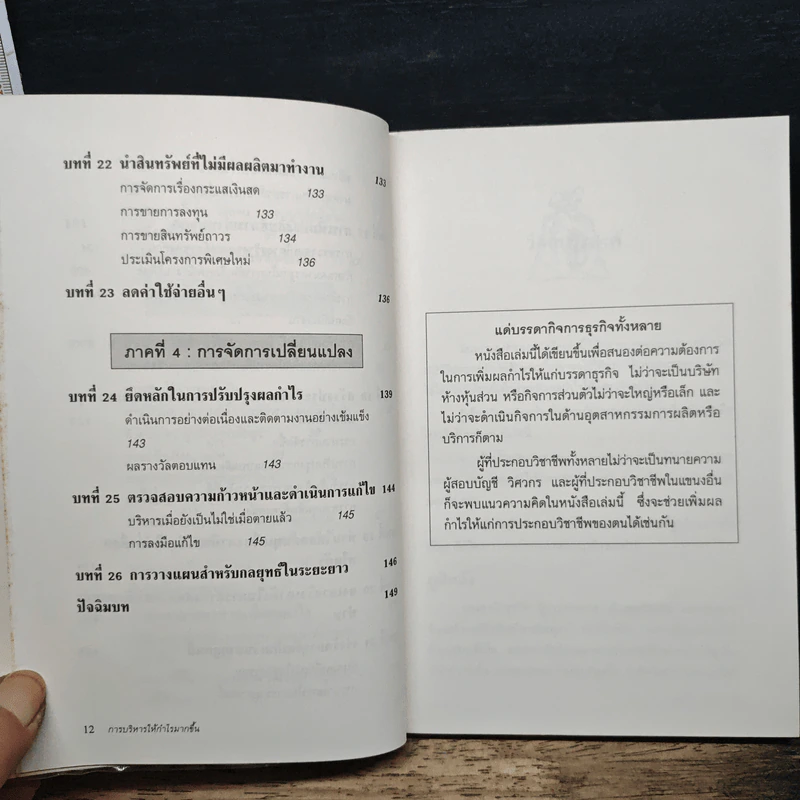 บทที่ 22 นำสินทรัพย์ที่ไม่มีผลผลิตมาทำงาน 133
การจัดการเรื่องกระแสเงินสด 133
การขายการลงทุน 133
การขายสินทรัพย์ถาวร 134
ประเมินโครงการพิเศษใหม่ 136
บทที่ 23 ลดค่าใช้จ่ายอื่นๆ 136
ภาคที่ 4 : การจัดการเปลี่ยนแปลง
บทที่ 24 ยึดหลักในการปรับปรุงผลกำไร 139
ดำเนินการอย่างต่อเนื่องและติดตามงานอย่างเข้มแข็ง
143
ผลรางวัลตอบแทน 143
บทที่ 25 ตรวจสอบความก้าวหน้าและดำเนินการแก้ไข 144
บริหารเมื่อยังเป็นไม่ใช่เมื่อตายแล้ว 145
การลงมือแก้ไข 145
บทที่ 26 การวางแผนสำหรับกลยุทธ์ในระยะยาว 146
ปัจฉิมบท 149
12 การบริหารให้กำไรมากขึ้น
แด่บรรดากิจการธุรกิจทั้งหลาย
หนังสือเล่มนี้ได้เขียนขึ้นเพื่อสนองต่อความต้องการ
ในการเพิ่มผลกำไรให้แก่บรรดาธุรกิจ ไม่ว่าจะเป็นบริษัท
ห้างหุ้นส่วน หรือกิจการส่วนตัวไม่ว่าจะใหญ่หรือเล็ก และ
ไม่ว่าจะดำเนินกิจการในด้านอุตสาหกรรมการผลิตหรือ
บริการก็ตาม
ผู้ที่ประกอบวิชาชีพทั้งหลายไม่ว่าจะเป็นทนายความ
ผู้สอบบัญชี วิศวกร และผู้ที่ประกอบวิชาชีพในแขนงอื่น
ก็จะพบแนวความคิดในหนังสือเล่มนี้ ซึ่งจะช่วยเพิ่มผล
กำไรให้แก่การประกอบวิชาชีพของตนได้เช่นกัน